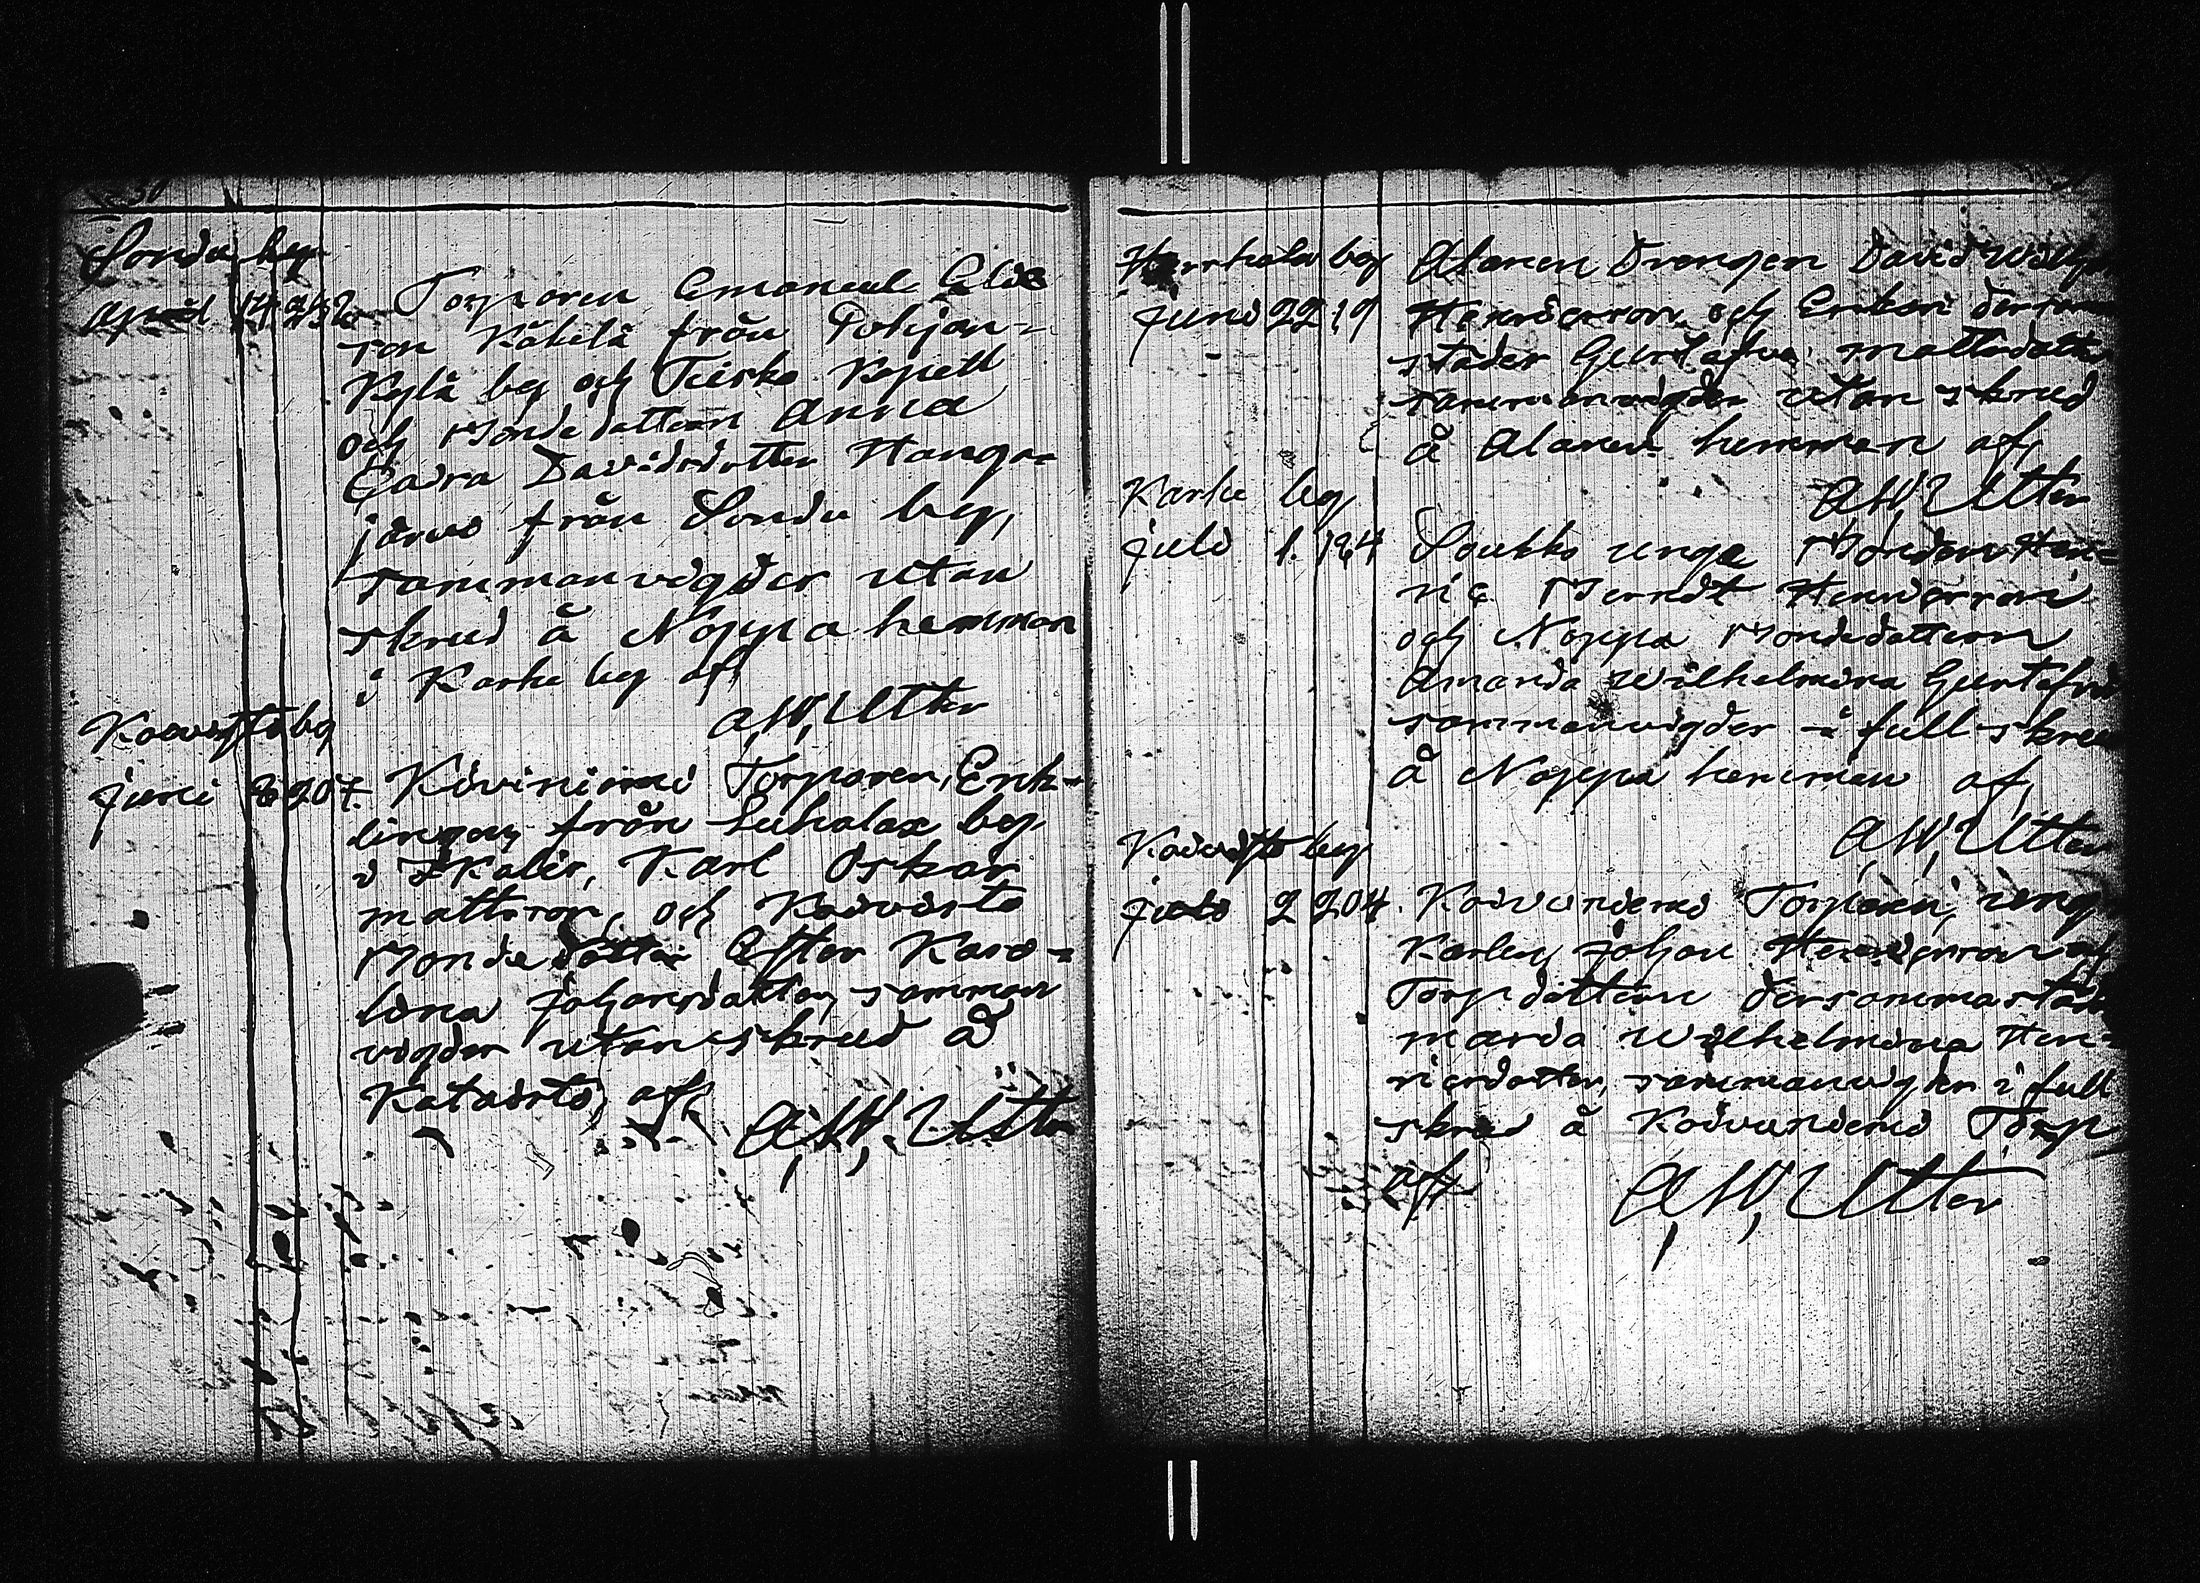 30
Sondu by
April 14 232. Torparen Emanuel Elias
son Käkelä från Pohjan-
kylä by och Teisko Kapell
och Bondedottern Anna
Edvra Davidsdotter Hanga-
järvi från Sondu by,
sammanvigder utan
skrud å Noppa hemman
i Karhe by af
A, W, Utter
Koivisto by
Juni 8 207. Kiviniemi Torparen, Enk-
lingen från Luhalax by
i Ikalis, Karl Oskar
Mattsson, och Koivisto
Bondedotter Ester Karo-
lina Johansdotter, samman
vigder utan skrud å
Kataisto, af,
A, W, Utter
by Alanen Drengen David
Juni 22 19 Henricsson och dersamma
städes Gustafva Mattsdotter
sammanvigder utan skrud
å Alanen hemman af,
A, W, Utter
Karhe by
Juli 1. 184 Soukko unge Bonden Hen-
ric Berndt Henricsson
och Noppa Bondedottern
Amanda Wilhelmina Gustafsd
sammanvigder i full skrud
å Noppa hemman af,
A, W, Utter
Koivisto by
Juli 2 204. Koivuniemi Torpar unge
Karlen, Johan Henricsson och
Torpdottern dersammastädes
Maria Wilhelmina Hen-
ricsdotter, sammanvigder i full
skrud å Koivuniemi Torp
af,
A, W, Utter